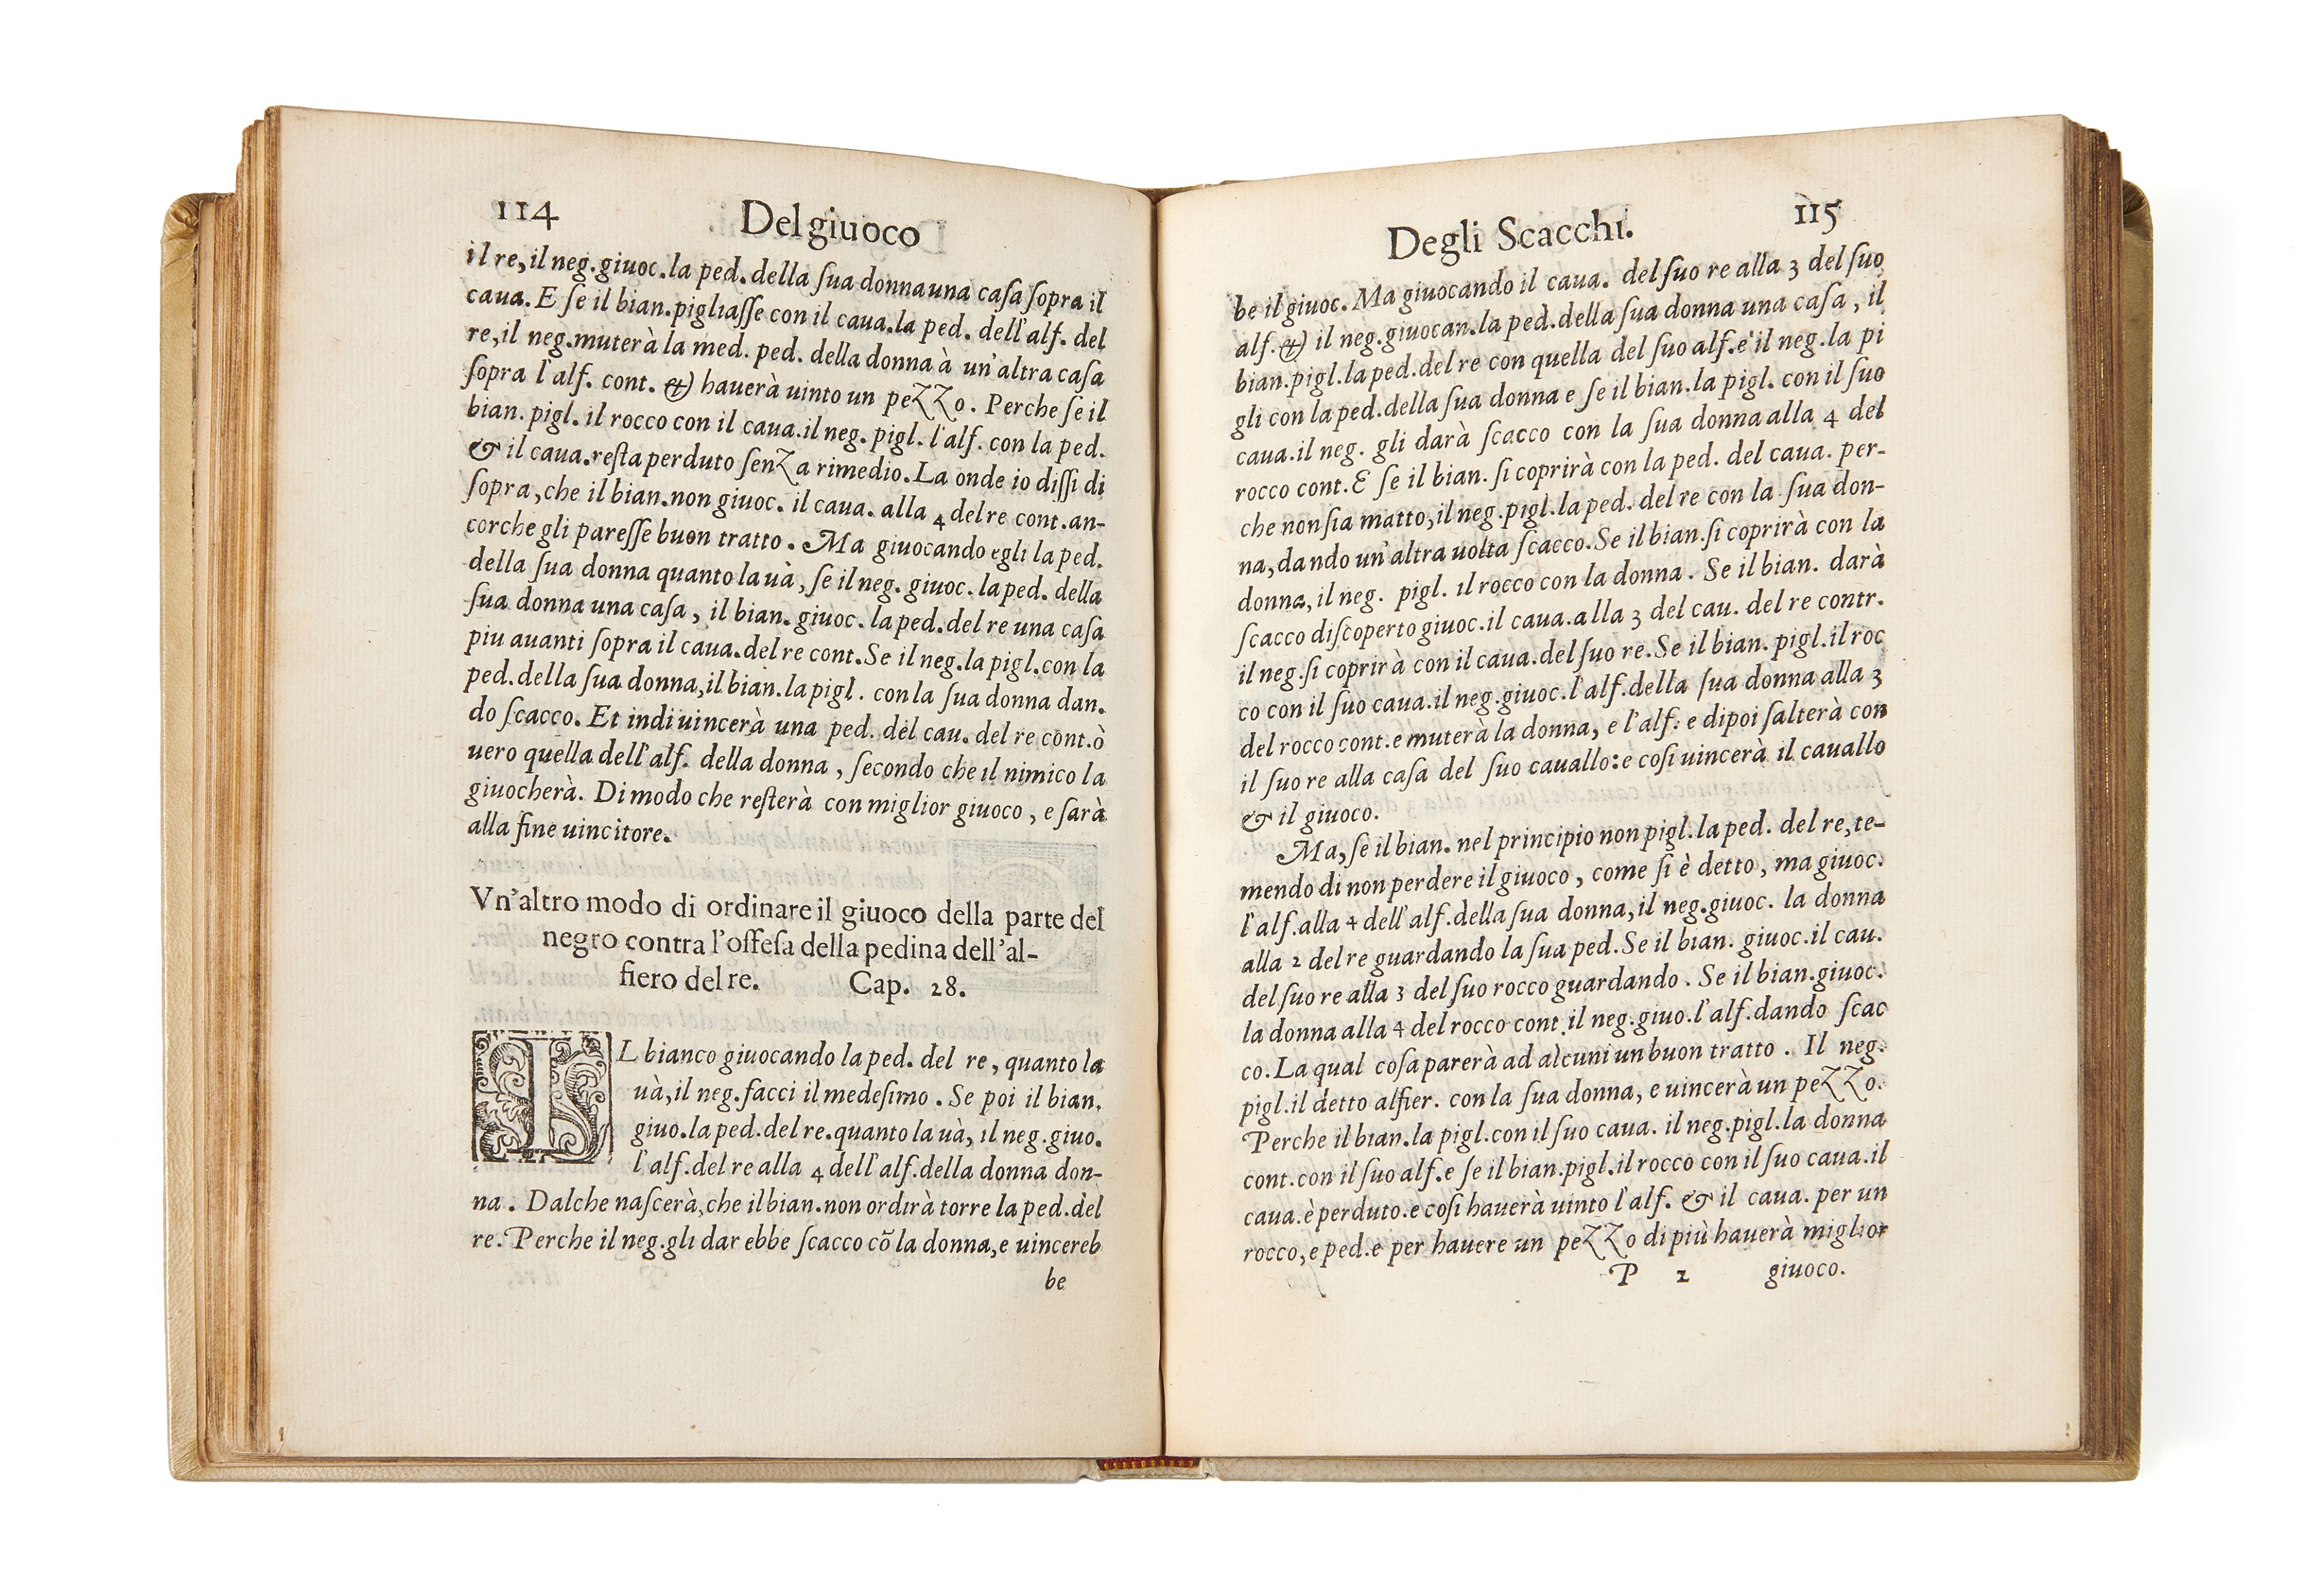 114
Del giuoco
il re, il neg. giuoc. la ped. della ſua donna una caſa ſopra il
caua. E ſe il bian. pigliaſſe con il caua. la ped. dell'alf. del
re, il neg. muterà la med. ped. della donna à un'altra caſa
ſopra l'alf. cont. & hauerà uinto un pezzo. Perche ſe il
bian. pigl. il rocco con il caua. il neg. pigl. l'alf. con la ped.
& il caua. reſta perduto ſenza rimedio. La onde io diſſi di
ſopra, che il bian. non giuoc. il caua. alla 4 del re cont. an-
corche gli pareſſe buon tratto. Ma giuocando egli la ped.
della ſua donna quanto la uà, ſe il neg. giuoc. la ped. della
ſua donna una caſa, il bian. giuoc. la ped. del re una caſa
piu auanti ſopra il caua. del re cont. Se il neg. la pigl. con la
ped. della ſua donna, il bian. la pigl. con la ſua donna dan.
do ſcacco. Et indi uincerà una ped. del cau. del re cont. ò
uero quella dell'alf. della donna, ſecondo che il nimico la
giuocherà. Di modo che reſterà con miglior giuoco, e ſarà
alla fine uincitore.
Vn'altro modo di ordinare il giuoco della parte del
negro contra l'offeſa della pedina dell'al-
fiero del re. Cap. 28.
IL bianco giuocando la ped. del re, quanto la
uà, il neg. facci il medeſimo. Se poi il bian.
giuo. la ped. del re. quanto la uà, il neg. giuo.
l'alf. del re alla 4 dell'alf. della donna don-
na. Dalche naſcerà, che il bian. non ordirà torre la ped. del
re. Perche il neg. gli dar ebbe ſcacco cõ la donna, e uincereb
be
Degli Scacchi.
115
be il giuoc. Ma giuocando il caua. del ſuo re alla 3 del ſuo
alf. & il neg. giuocan. la ped. della ſua donna una caſa, il
bian. pigl. la ped. del re con quella del ſuo alf. e il neg. la pi
gli con la ped. della ſua donna e ſe il bian. la pigl. con il ſuo
caua. il neg. gli darà ſcacco con la ſua donna alla 4 del
rocco cont. E ſe il bian. ſi coprirà con la ped. del caua. per-
che non ſia matto, il neg. pigl. la ped. del re con la ſua don-
na, dando un'altra uolta ſcacco. Se il bian. ſi coprirà con la
donna, il neg. pigl. il rocco con la donna. Se il bian. darà
ſcacco diſcoperto giuoc. il caua. alla 3 del cau. del re contr.
il neg. ſi coprirà con il caua. del ſuo re. Se il bian. pigl. il roc
co con il ſuo caua. il neg. giuoc. l'alf. della ſua donna alla 3
del rocco cont. e muterà la donna, e l'alf. e dipoi ſalterà con
il ſuo re alla caſa del ſuo cauallo: e coſi uincerà il cauallo
& il giuoco.
Ma, ſe il bian. nel principio non pigl. la ped. del re, te-
mendo di non perdere il giuoco, come ſi è detto, ma giuoc.
l'alf. alla 4 dell'alf. della ſua donna, il neg. giuoc. la donna
alla 2 del re guardando la ſua ped. Se il bian. giuoc. il cau.
del ſuo re alla 3 del ſuo rocco guardando. Se il bian. giuoc.
la donna alla 4 del rocco cont. il neg. giuo. l'alf. dando ſcac
co. La qual coſa parerà ad alcuni un buon tratto. Il neg.
pigl. il detto alfier. con la ſua donna, e uincerà un pezzo.
Perche il bian. la pigl. con il ſuo caua. il neg. pigl. la donna
cont. con il ſuo alf. e ſe il bian. pigl. il rocco con il ſuo caua. il
caua. è perduto. e coſi hauerà uinto l'alf. & il caua. per un
rocco, e ped. e per hauere un pezzo di più hauerà miglior
P 2 giuoco.